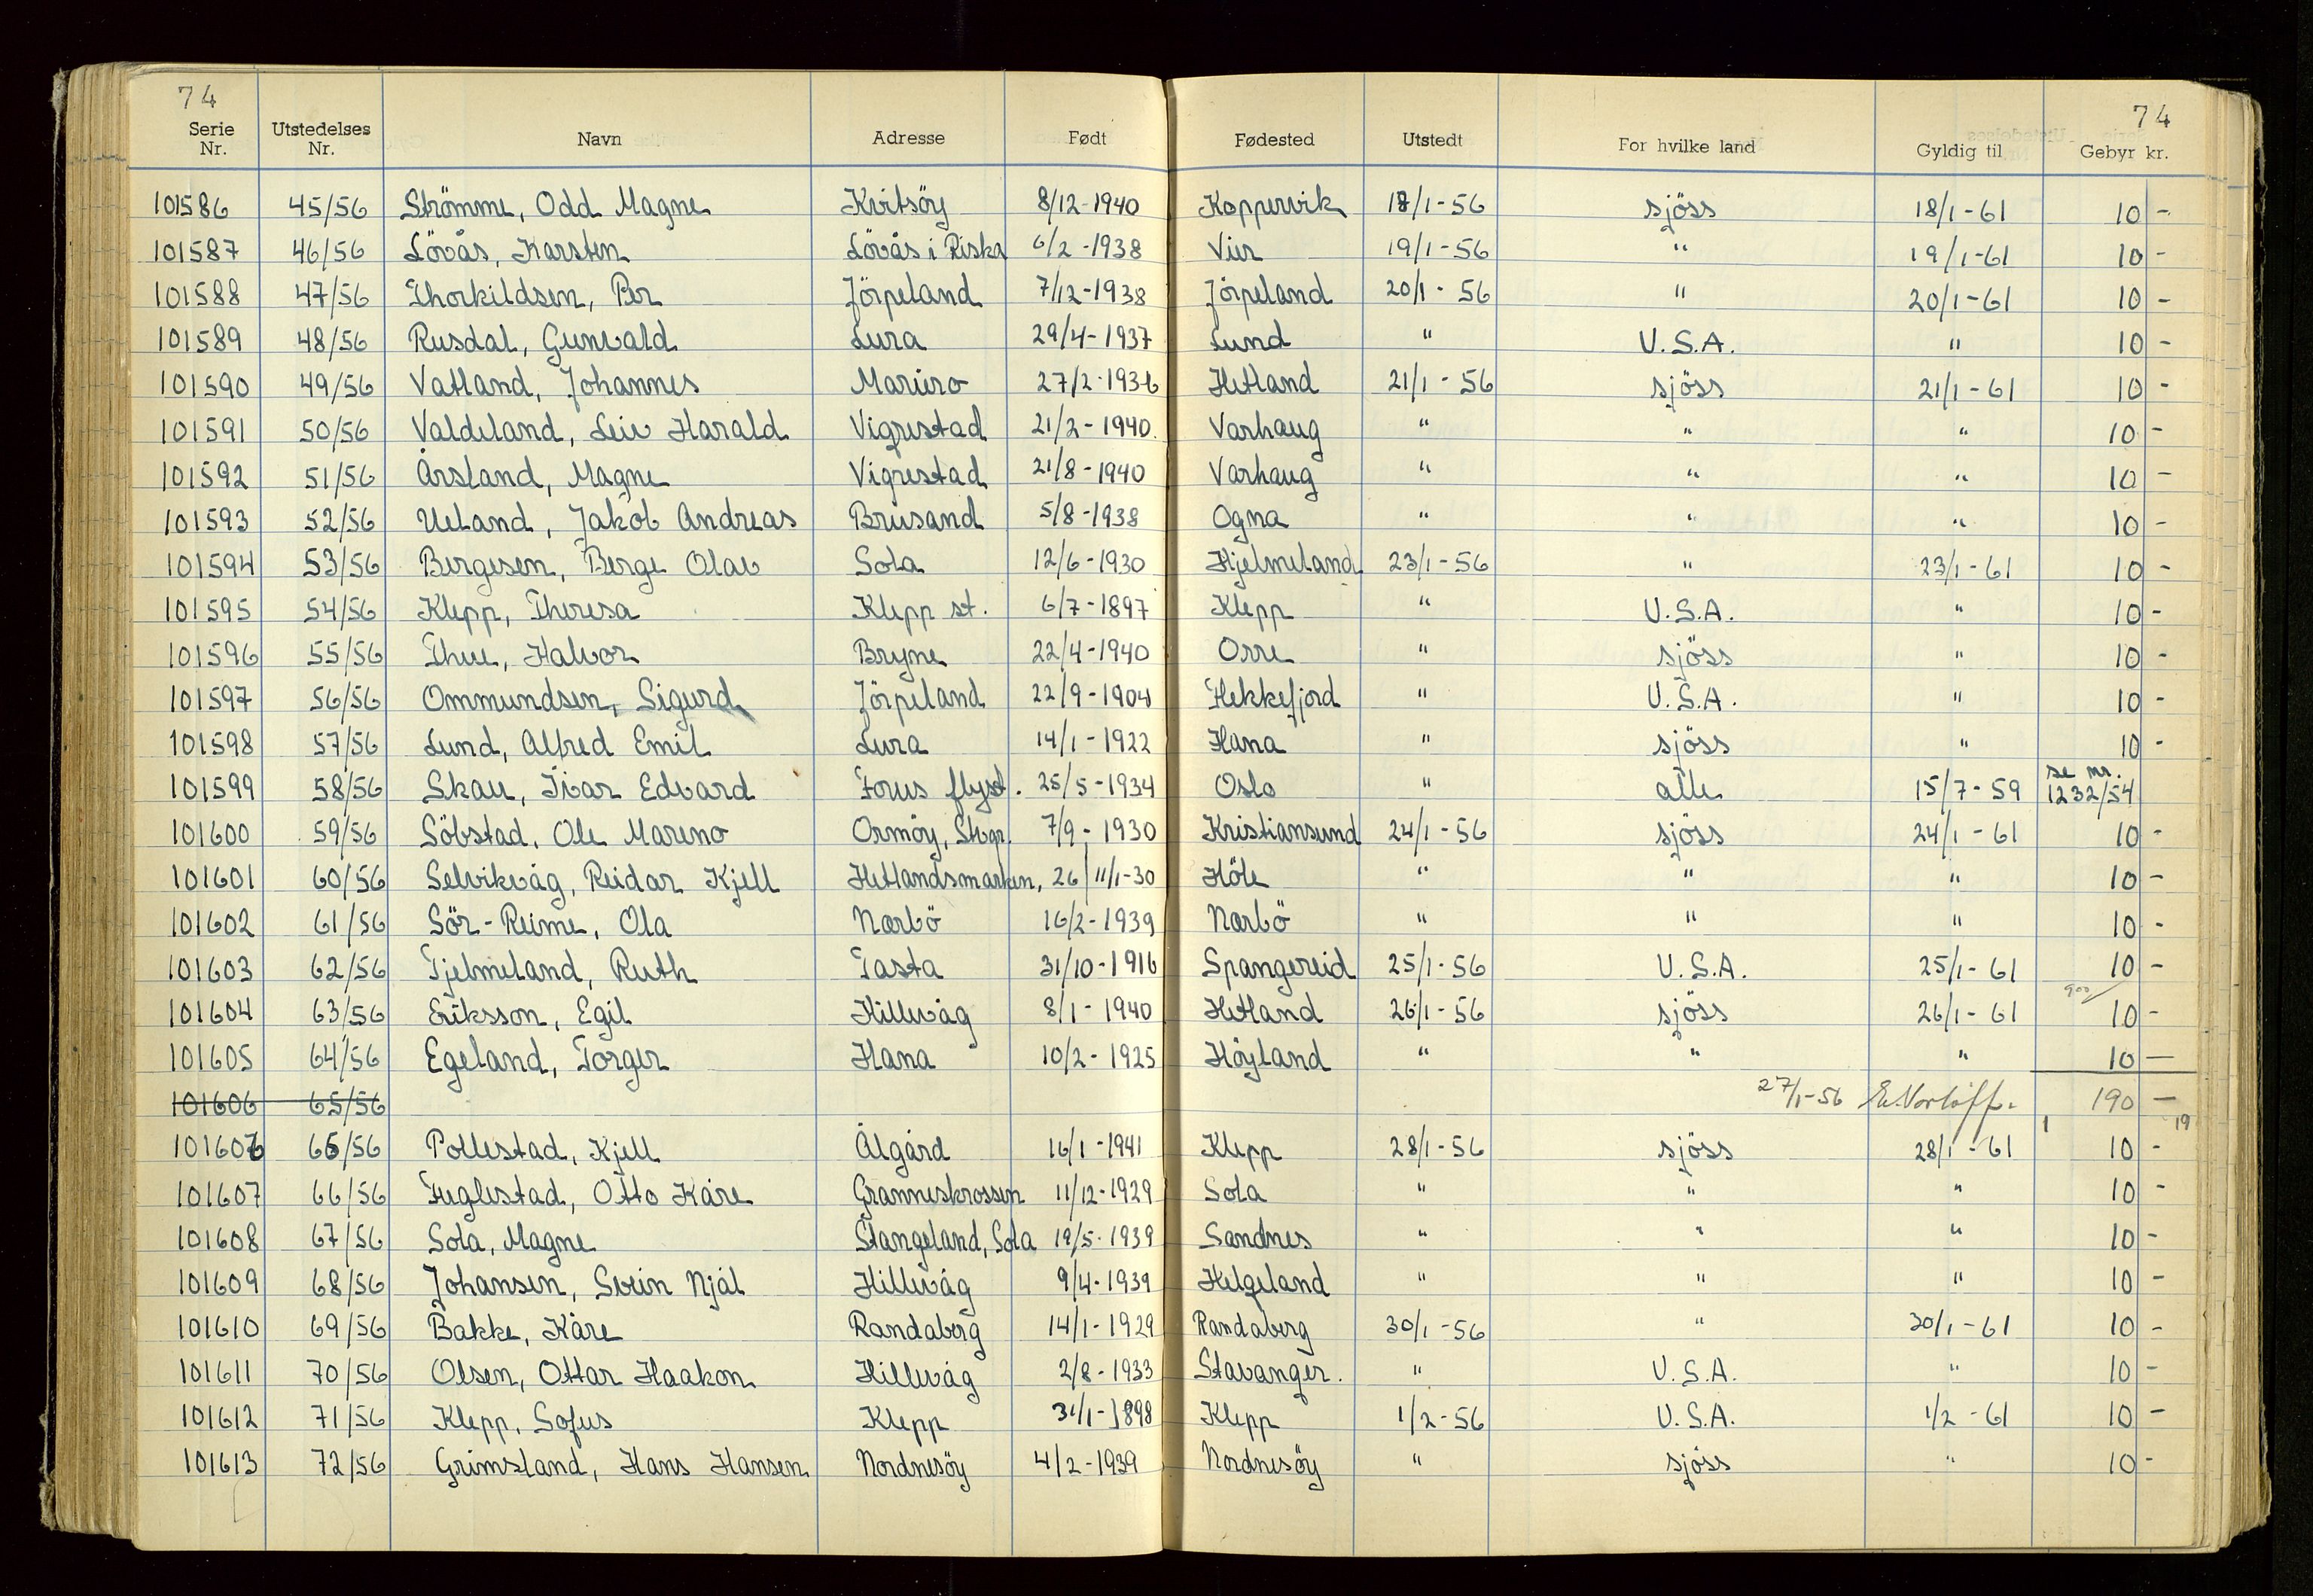 74 74
Serie Nr. Utstedelses Nr. Navn Adresse Født Fødested Utstedt For hvilke land Gyldig til Gebyr kr.
101586 45/56 Strömme, Odd Magne Kvitsöy 8/12-1940 Koppervik 18/1-56 sjöss 18/1-61 10 -
101587 46/56 Lövås, Karsten Lövås i Riska 6/2-1938 Vier 19/1-56 " 19/1-61 10 -
101588 47/56 Thorkildsen, Per Jörpeland 7/12-1938 Jörpeland 20/1-56 " 20/1-61 10 -
101589 48/56 Rusdal, Gunvald Lura 29/4-1937 Lund " U.S.A. " 10 -
101590 49/56 Vatland, Johannes Mariero 27/2-1936 Hetland 21/1-56 sjöss 21/1-61 10 -
101591 50/56 Valdeland, Leiv Harald Vigrestad 21/2-1940. Varhaug " " " 10 -
101592 51/56 Årsland, Magne Vigrestad 21/8-1940 Varhaug " " " 10 -
101593 52/56 Ueland, Jakob Andreas Brusand 5/8-1938 Ogna " " " 10 -
101594 53/56 Bergesen, Berge Olav Sola 12/6-1930 Hjelmeland 23/1-56 " 23/1-61 10 -
101595 54/56 Klepp, Theresa Klepp st. 6/7-1897 Klepp " U.S.A. " 10 -
101596 55/56 Thue, Halvor Bryne 22/4-1940 Orre " sjöss " 10 -
101597 56/56 Ommundsen, Sigurd Jörpeland 22/9-1904 Flekkefjord " U.S.A. " 10 -
101598 57/56 Lund, Alfred Emil Lura 14/1-1922 Hana " sjöss " 10 -
101599 58/56 Skau, Ivar Edvard Forus flyst. 25/5-1934 Oslo " alle 15/7-59 se nr. 1232/54
101600 59/56 Söbstad, Ole Mareno Ormöy, Stvgr. 7/9-1930 Kristiansund 24/1-56 sjöss 24/1-61 10 -
101601 60/56 Selvikvåg, Reidar Kjell Hetlandsmarken, 26 11/1-30 Höle " " " 10 -
101602 61/56 Sör-Reime, Ola Nærbö 16/2-1939 Nærbö " " " 10 -
101603 62/56 Tjelmeland, Ruth Tasta 31/10-1916 Spangereid 25/1-56 U.S.A. 25/1-61 10 -
101604 63/56 Eriksson, Egil Hillevåg 8/1-1940 Hetland 26/1-56 sjöss 26/1-61 10 -
101605 64/56 Egeland, Torger Hana 10/2-1925 Höyland " " " 10 —
101606 65/56 27/1-56 190 —
19
101606 65/56 Pollestad, Kjell Ålgård 16/1-1941 Klepp 28/1-56 sjöss 28/1-61 10 -
101607 66/56 Fuglestad, Otto Kåre Granneskrossen 11/12-1929 Sola " " " 10 -
101608 67/56 Sola, Magne Stangeland, Sola 19/5-1939 Sandnes " " " 10 -
101609 68/56 Johansen, Svein Njål Hillevåg 9/4-1939 Helgeland " " " 10 -
101610 69/56 Bakke, Kåre Randaberg 14/1-1929 Randaberg 30/1-56 " 30/1-61 10 -
101611 70/56 Olsen, Ottar Haakon Hillevåg 2/8-1933 Stavanger. " U.S.A. " 10 -
101612 71/56 Klepp, Sofus Klepp 31/1-1898 Klepp 1/2-56 U.S.A. 1/2-61 10 -
101613 72/56 Grimsland, Hans Hansen Nordnesöy 4/2-1939 Nordnesöy " sjöss " 10 -